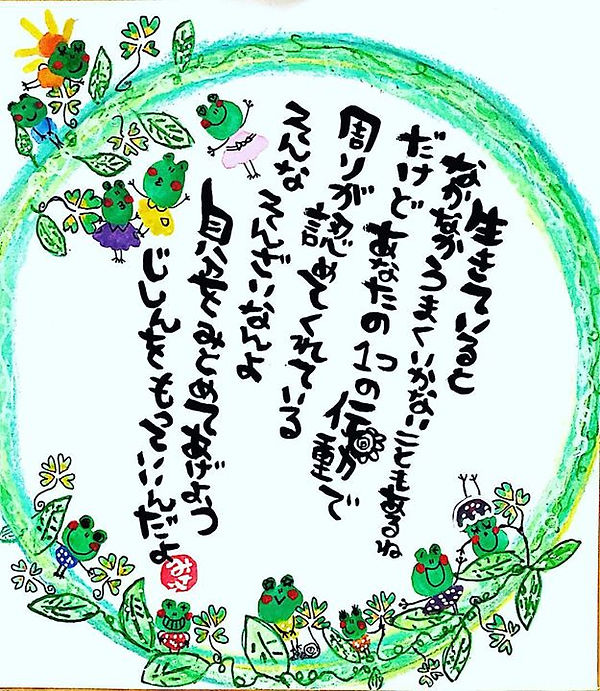 生きていると
なかなかうまくいかないこともあるね
だけどあなたの1つの行動で
周りが認めてくれている
そんなそんざいなんよ
自分をみとめてあげよう
じしんをもっていいんだよ